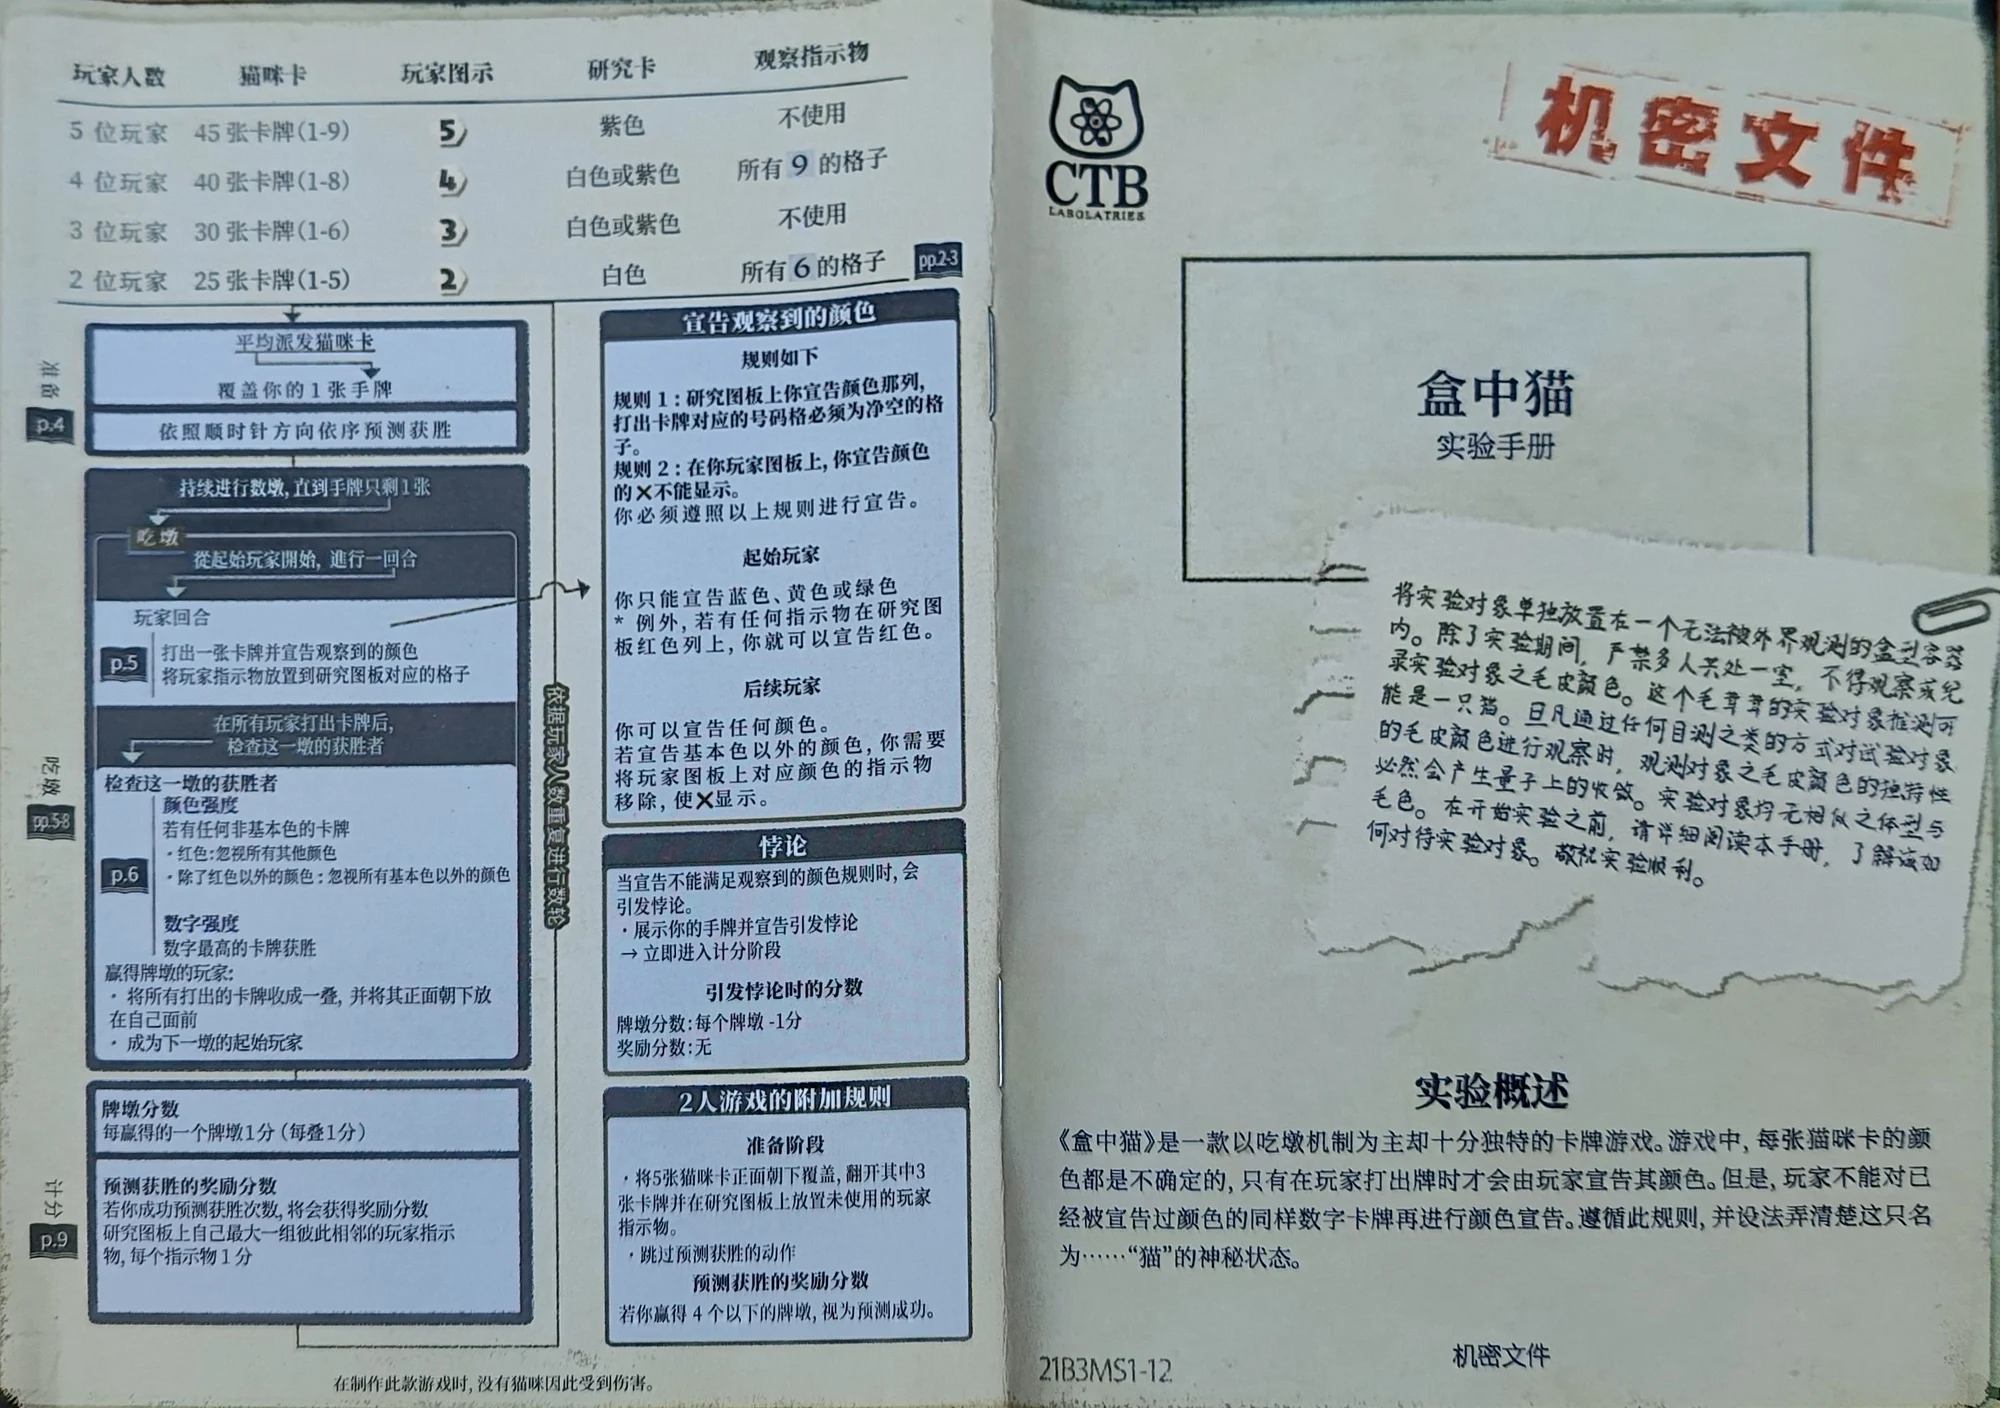 玩家人数 猫咪卡 玩家图示 研究卡 观察指示物
5 位玩家 45 张卡牌(1-9) 5 紫色 不使用
4 位玩家 40 张卡牌(1-8) 4 白色或紫色 所有 9 的格子
3 位玩家 30 张卡牌(1-6) 3 白色或紫色 不使用
2 位玩家 25 张卡牌(1-5) 2 白色 所有 6 的格子
pp.2-3
准备
p.4
平均派发猫咪卡
覆盖你的 1 张手牌
依照顺时针方向依序预测获胜
吃墩
pp.5-8
持续进行数墩,直到手牌只剩1张
吃墩
從起始玩家開始, 進行一回合
玩家回合
p.5
打出一张卡牌并宣告观察到的颜色
将玩家指示物放置到研究图板对应的格子
在所有玩家打出卡牌后,
检查这一墩的获胜者
检查这一墩的获胜者
颜色强度
若有任何非基本色的卡牌
·红色:忽视所有其他颜色
·除了红色以外的颜色:忽视所有基本色以外的颜色
p.6
数字强度
数字最高的卡牌获胜
赢得牌墩的玩家:
· 将所有打出的卡牌收成一叠, 并将其正面朝下放
在自己面前
· 成为下一墩的起始玩家
依据玩家人数重复进行数轮
计分
p.9
牌墩分数
每赢得的一个牌墩1分 (每叠1分)
预测获胜的奖励分数
若你成功预测获胜次数, 将会获得奖励分数
研究图板上自己最大一组彼此相邻的玩家指示
物, 每个指示物 1 分
宣告观察到的颜色
规则如下
规则 1：研究图板上你宣告颜色那列,
打出卡牌对应的号码格必须为净空的格
子。
规则 2：在你玩家图板上, 你宣告颜色
的✕不能显示。
你必须遵照以上规则进行宣告。
起始玩家
你只能宣告蓝色、黄色或绿色
* 例外, 若有任何指示物在研究图
板红色列上, 你就可以宣告红色。
后续玩家
你可以宣告任何颜色。
若宣告基本色以外的颜色, 你需要
将玩家图板上对应颜色的指示物
移除, 使✕显示。
悖论
当宣告不能满足观察到的颜色规则时, 会
引发悖论。
· 展示你的手牌并宣告引发悖论
→ 立即进入计分阶段
引发悖论时的分数
牌墩分数:每个牌墩 -1分
奖励分数:无
2人游戏的附加规则
准备阶段
· 将5张猫咪卡正面朝下覆盖, 翻开其中3
张卡牌并在研究图板上放置未使用的玩家
指示物。
· 跳过预测获胜的动作
预测获胜的奖励分数
若你赢得 4 个以下的牌墩, 视为预测成功。
在制作此款游戏时, 没有猫咪因此受到伤害。
CTB
LABOLATRIES
机密文件
盒中猫
实验手册
将实验对象单独放置在一个无法被外界观测的盒型容器
内。除了实验期间, 严禁多人共处一室, 不得观察或纪
录实验对象之毛皮颜色。这个毛茸茸的实验对象推测可
能是一只猫。旦凡通过任何目测之类的方式对试验对象
的毛皮颜色进行观察时, 观测对象之毛皮颜色的独特性
必然会产生量子上的收敛。实验对象均无相似之体型与
毛色。在开始实验之前, 请详细阅读本手册, 了解该如
何对待实验对象。敬祝实验顺利。
实验概述
《盒中猫》是一款以吃墩机制为主却十分独特的卡牌游戏。游戏中, 每张猫咪卡的颜
色都是不确定的, 只有在玩家打出牌时才会由玩家宣告其颜色。但是, 玩家不能对已
经被宣告过颜色的同样数字卡牌再进行颜色宣告。遵循此规则, 并设法弄清楚这只名
为……“猫”的神秘状态。
机密文件
21B3MS1-12